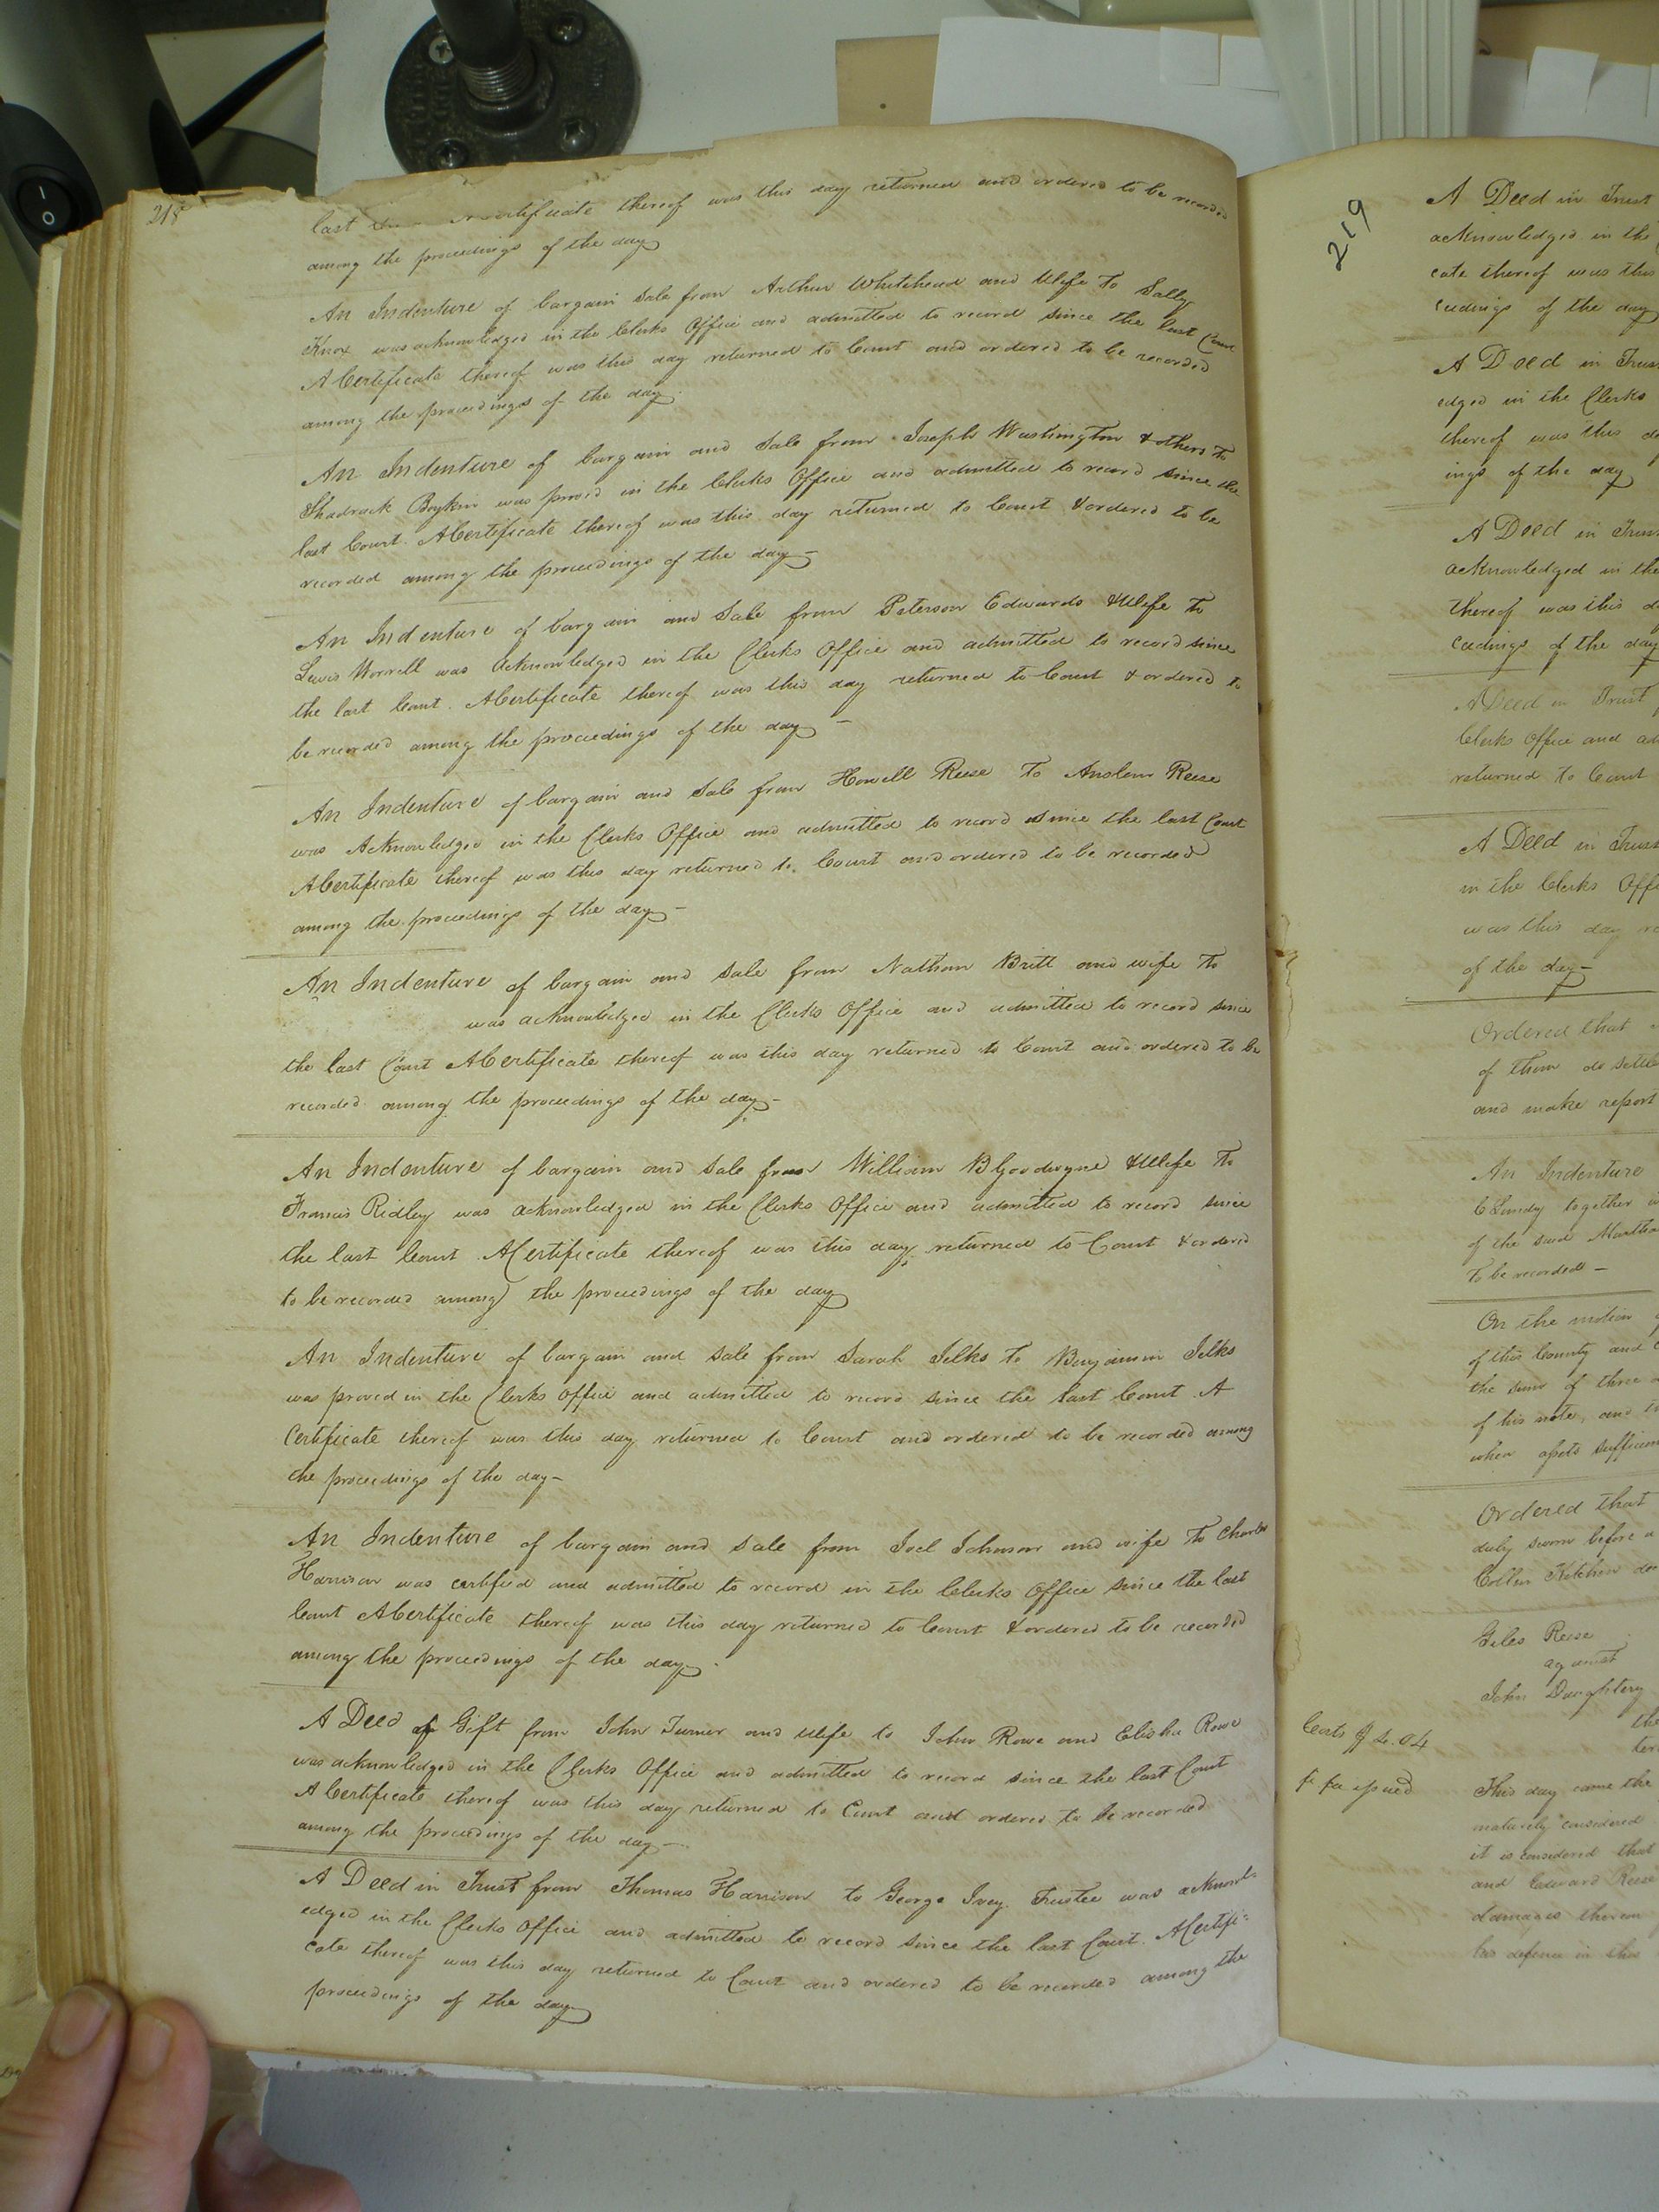 218
last certificate thereof was this day returned and ordered to be recorded
among the proceedings of the day
An Indenture of bargain Sale from Arthur Whitehead and Wife To Sally
Knox was acknowledged in the Clerks Office and admitted to record since the last Court
A Certificate thereof was this day returned to Court and ordered to be recorded
among the proceedings of the day.
An Indenture of bargain and Sale from Joseph Washington & others To
Shadrack Boykin was proved in the Clerks Office and admitted to record since the
last Court. A Certificate thereof was this day returned to Court & ordered to be
recorded among the proceedings of the day –
An Indenture of bargain and Sale from Peterson Edwards & Wife To
Lewis Worrell was Acknowledged in the Clerks Office and admitted to record since
the last Court. A Certificate thereof was this day returned to Court & ordered to
be recorded among the proceedings of the day –
An Indenture of bargain and Sale from Howell Reese To Anslem Reese
was Acknowledged in the Clerks Office and admitted to record since the last Court
A Certificate thereof was this day returned to Court and ordered to be recorded
among the proceedings of the day –
An Indenture of bargain and Sale from Nathan Britt and wife To
was acknowledged in the Clerks Office and admitted to record since
the last Court A Certificate thereof was this day returned to Court and ordered to be
recorded among the proceedings of the day –
An Indenture of bargain and Sale from William B Goodwyne & Wife To
Francis Ridley was acknowledged in the Clerks Office and admitted to record since
the last Court A Certificate thereof was this day returned to Court & ordered
to be recorded among the proceedings of the day
An Indenture of bargain and Sale from Sarah Jelks To Benjamin Jelks
was proved in the Clerks Office and admitted to record since the last Court A
Certificate thereof was this day returned to Court and ordered to be recorded among
the proceedings of the day –
An Indenture of bargain and Sale from Joel Johnson and wife To Charles
Harrison was certified and admitted to record in the Clerks Office since the last
Court A Certificate thereof was this day returned to Court & ordered to be recorded
among the proceedings of the day.
A Deed of Gift from John Turner and Wife to John Rowe and Elisha Rowe
was acknowledged in the Clerks Office and admitted to record since the last Court
A Certificate thereof was this day returned to Court and ordered to be recorded
among the proceedings of the day –
A Deed in Trust from Thomas Harrison to George Ivey Trustee was acknowl-
edged in the Clerks Office and admitted to record since the last Court. A Certifi-
cate thereof was this day returned to Court and ordered to be recorded among the
proceedings of the day
219
A Deed in Trust
acknowledged in the
cate thereof was this
ceedings of the day
A Deed in Trust
edged in the Clerks
thereof was this
ings of the day
A Deed in Trust
acknowledged in the
thereof was this
ceedings of the day
A Deed in Trust
Clerks Office and
returned to Court
A Deed in Trust
in the Clerks Offi
was this day
of the day –
Ordered that
of them do settle
and make report
An Indenture
C Lundy together
of the said Martha
to be recorded –
On the motion
of this County and
the sum of three
of his note, and
when assets sufficien
Ordered that
duly sworn before
Collin Kitchen
Giles Reese
against
John Daughtery
the
Costs $4.04
fi fa issued
This day came the
maturely considered
it is considered that
and Edward Reese
damages thereon
his defence in this